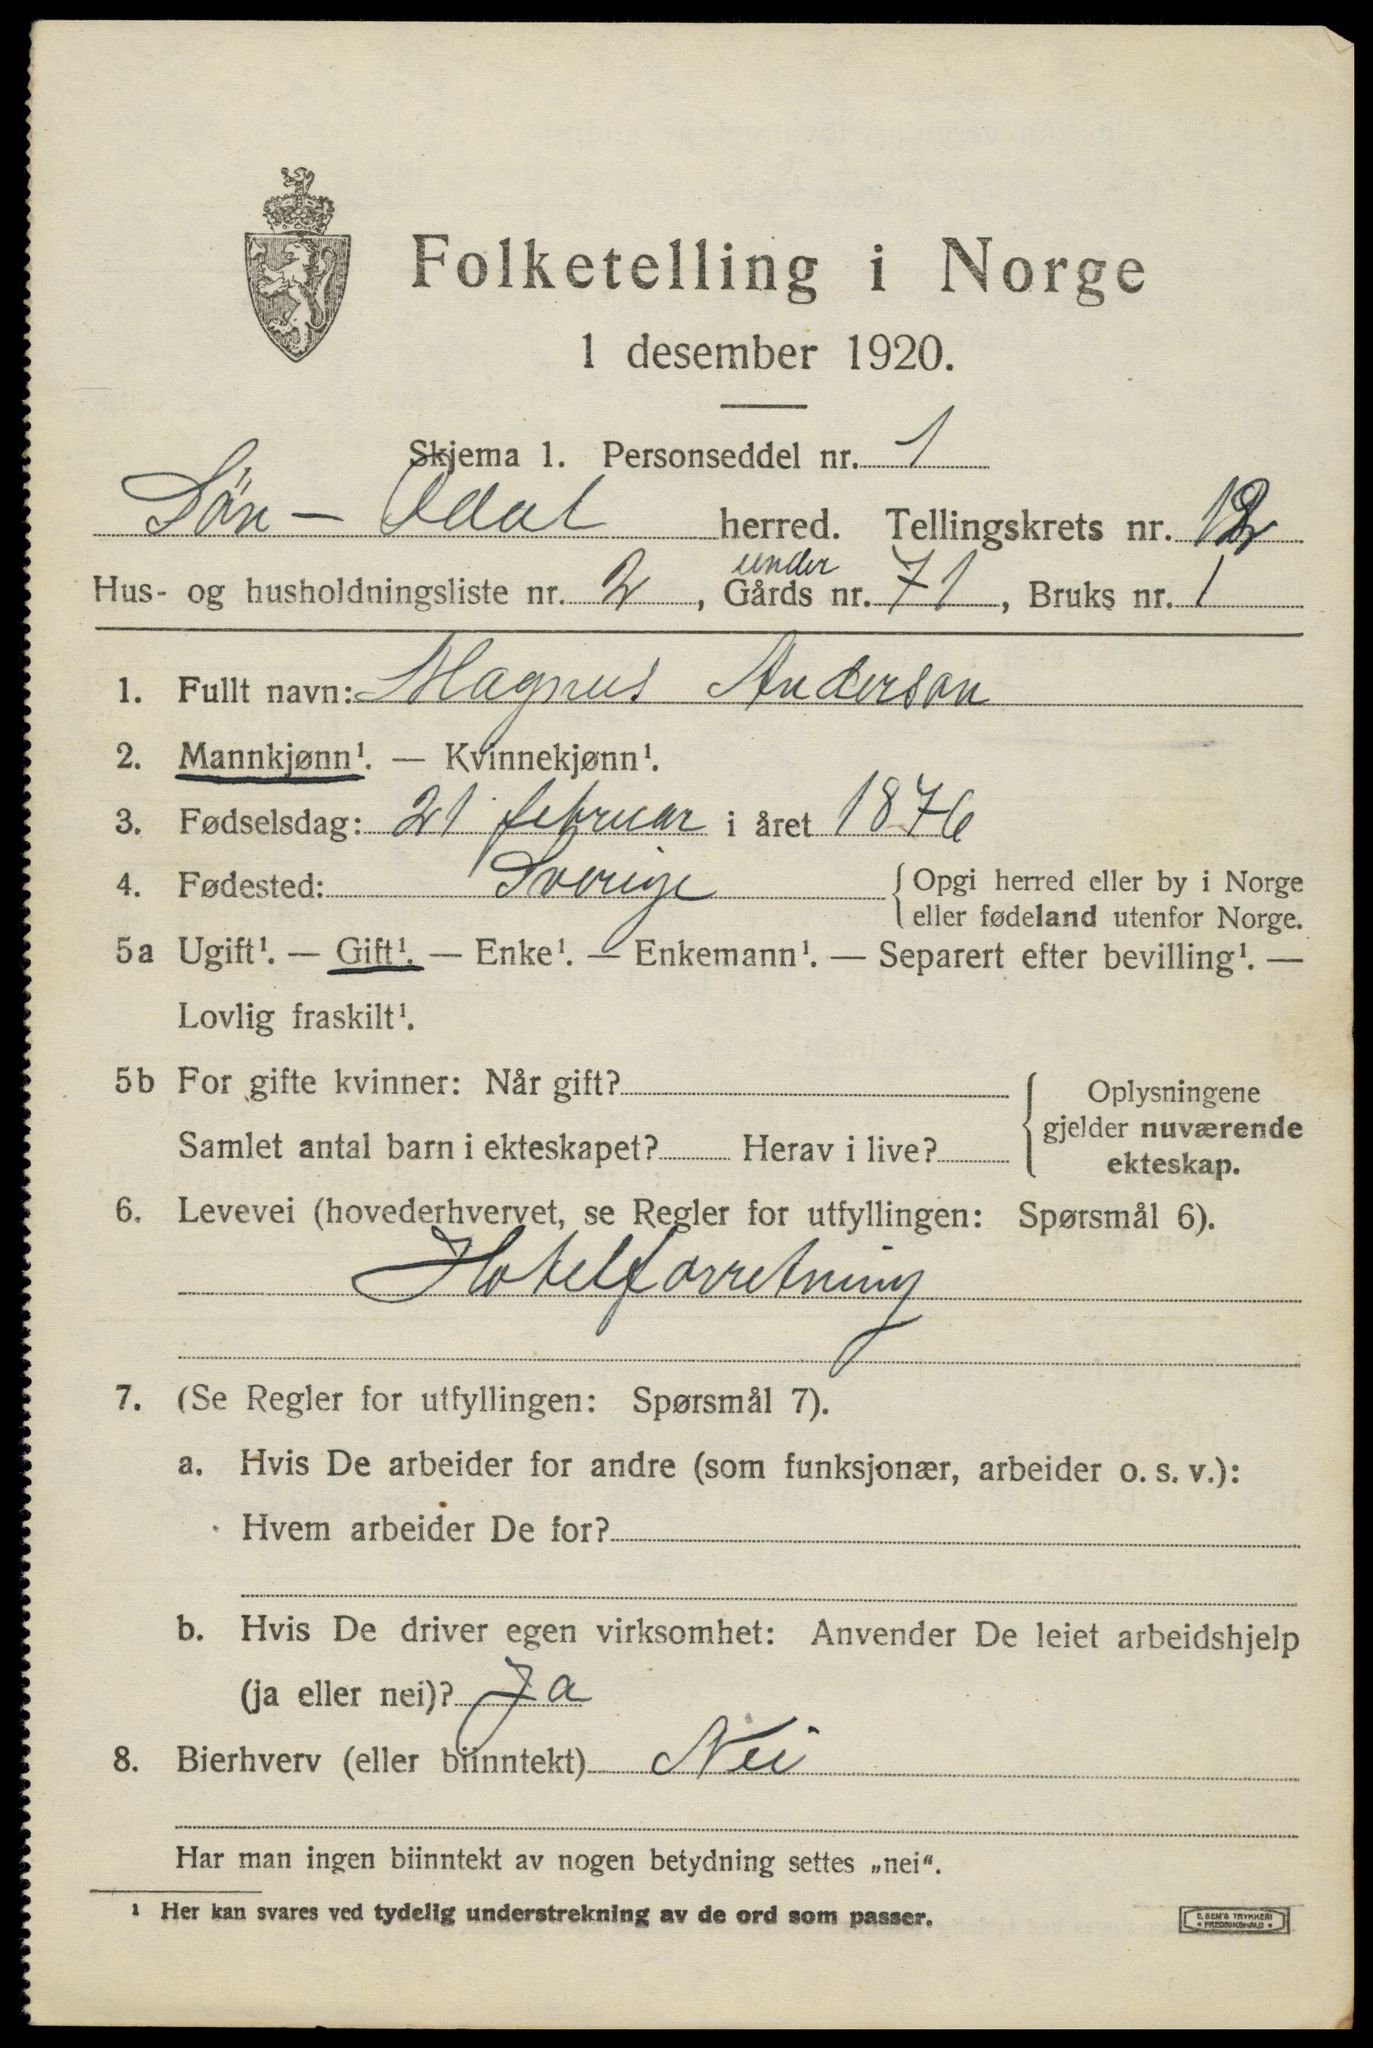 Folketelling i Norge
1 desember 1920.
Skjema 1. Personseddel nr. 1
Søn - Odal herred. Tellingskrets nr. 12
under
Hus- og husholdningsliste nr. 2, Gårds nr. 71, Bruks nr. 1
1. Fullt navn: Magnus Anderson
2. Mannkjønn¹. — Kvinnekjønn¹.
3. Fødselsdag: 21 februar i året 1876
4. Fødested: Sverige { Opgi herred eller by i Norge
eller fødeland utenfor Norge.
5a Ugift¹. — Gift¹. — Enke¹. — Enkemann¹. — Separert efter bevilling¹. —
Lovlig fraskilt¹.
5b For gifte kvinner: Når gift? Oplysningene
gjelder nuværende
Samlet antal barn i ekteskapet? Herav i live? ekteskap.
6. Levevei (hovederhvervet, se Regler for utfyllingen: Spørsmål 6).
Hotelforretning
7. (Se Regler for utfyllingen: Spørsmål 7).
a. Hvis De arbeider for andre (som funksjonær, arbeider o. s. v.):
Hvem arbeider De for?
b. Hvis De driver egen virksomhet: Anvender De leiet arbeidshjelp
(ja eller nei)? Ja
8. Bierhverv (eller biinntekt) Nei
Har man ingen biinntekt av nogen betydning settes „nei“.
¹ Her kan svares ved tydelig understrekning av de ord som passer.
E. SEM'S TRYKKERI
• FREDRIKSHALD •